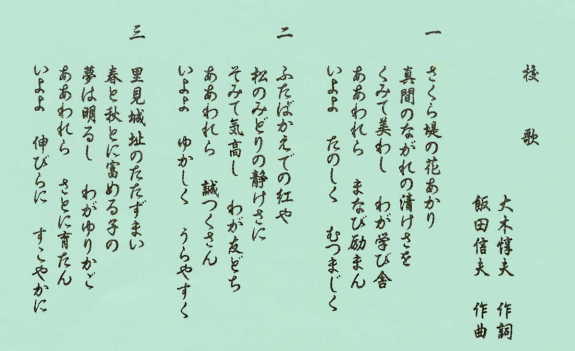 校歌
大木惇夫 作詞
飯田信夫 作曲
一
さくら堤の花あかり
真間のながれの清けさを
くみて美わし わが学び舎
ああわれら まなび励まん
いよよ たのしく むつまじく
二
ふたばかえでの紅や
松のみどりの静けさに
そみて気高し わが友どち
ああわれら 誠つくさん
いよよ ゆかしく うらやすく
三
里見城址のたたずまい
春と秋とに富める子の
夢は明るし わがゆりかご
ああわれら さとに育たん
いよよ 伸びらに すこやかに